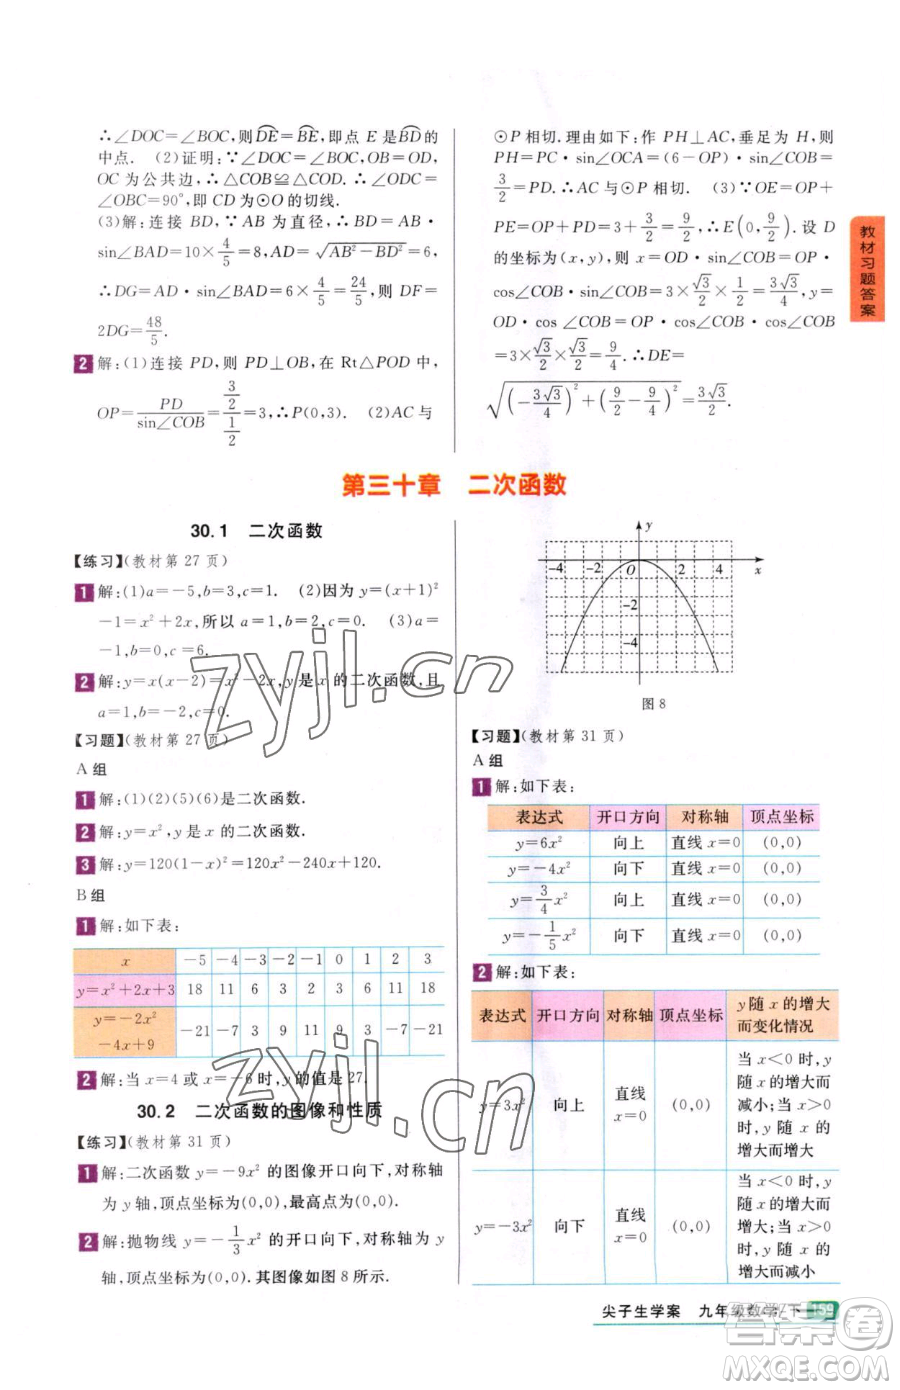 ∴∠DOC=∠BOC,则DE=BE,即点 E 是BD的
中点. (2)证明:∵∠DOC=∠BOC,OB=OD,
OC 为公共边,∴△COB≌△COD.∴∠ODC=
∠OBC=90°,即 CD 为⊙O 的切线.
(3)解:连接 BD,∵AB 为直径,∴BD=AB·
sin∠BAD=10×4/5=8,AD=√(AB²-BD²)=6,
∴DG=AD·sin∠BAD=6×4/5=24/5,则 DF=
2DG=48/5.
2 解:(1)连接 PD,则 PD⊥OB,在 Rt△POD 中,
OP=PD/sin∠COB=(3/2)/(1/2)=3,∴P(0,3). (2)AC 与
⊙P 相切.理由如下:作 PH⊥AC,垂足为 H,则
PH=PC·sin∠OCA=(6-OP)·sin∠COB=
3/2=PD.∴AC 与⊙P 相切. (3)∵OE=OP+
PE=OP+PD=3+3/2=9/2,∴E(0,9/2).设 D
的坐标为(x,y),则 x=OD·sin∠COB=OP·
cos∠COB·sin∠COB=3×√3/2×1/2=3√3/4,y=
OD·cos∠COB=OP·cos∠COB·cos∠COB
=3×√3/2×√3/2=9/4.∴DE=
√((-3√3/4)²+(9/2-9/4)²)=3√3/2.
教材习题答案
第三十章 二次函数
30.1 二次函数
【练习】(教材第 27 页)
1 解:(1)a=-5,b=3,c=1. (2)因为 y=(x+1)²
-1=x²+2x,所以 a=1,b=2,c=0. (3)a=
-1,b=0,c=6.
2 解:y=x(x-2)=x²-2x,y 是 x 的二次函数,且
a=1,b=-2,c=0.
【习题】(教材第 27 页)
A 组
1 解:(1)(2)(5)(6)是二次函数.
2 解:y=x²,y 是 x 的二次函数.
3 解:y=120(1-x)²=120x²-240x+120.
B 组
1 解:如下表:
x -5 -4 -3 -2 -1 0 1 2 3
y=x²+2x+3 18 11 6 3 2 3 6 11 18
y=-2x²
-4x+9 -21 -7 3 9 11 9 3 -7 -21
2 解:当 x=4 或 x=-6 时,y 的值是 27.
30.2 二次函数的图像和性质
【练习】(教材第 31 页)
1 解:二次函数 y=-9x² 的图像开口向下,对称轴
为 y 轴,顶点坐标为(0,0),最高点为(0,0).
2 解:抛物线 y=-1/3x² 的开口向下,对称轴为 y
轴,顶点坐标为(0,0).其图像如图 8 所示.
y
-4 -2 O 2 4 x
-2
-4
图 8
【习题】(教材第 31 页)
A 组
1 解:如下表:
表达式 开口方向 对称轴 顶点坐标
y=6x² 向上 直线 x=0 (0,0)
y=-4x² 向下 直线 x=0 (0,0)
y=3/4x² 向上 直线 x=0 (0,0)
y=-1/5x² 向下 直线 x=0 (0,0)
2 解:如下表:
表达式 开口方向 对称轴 顶点坐标 y 随 x 的增大
而变化情况
y=3x² 向上 直线
x=0 (0,0) 当 x<0 时,y
随 x 的增大而
减小;当 x>0
时,y 随 x 的
增大而增大
y=-3x² 向下 直线
x=0 (0,0) 当 x<0 时,y
随 x 的增大而
增大;当 x>0
时,y 随 x 的
增大而减小
尖子生学案 九年级数学/下 159
zyjl.cn
答案圈
MXQE.COM